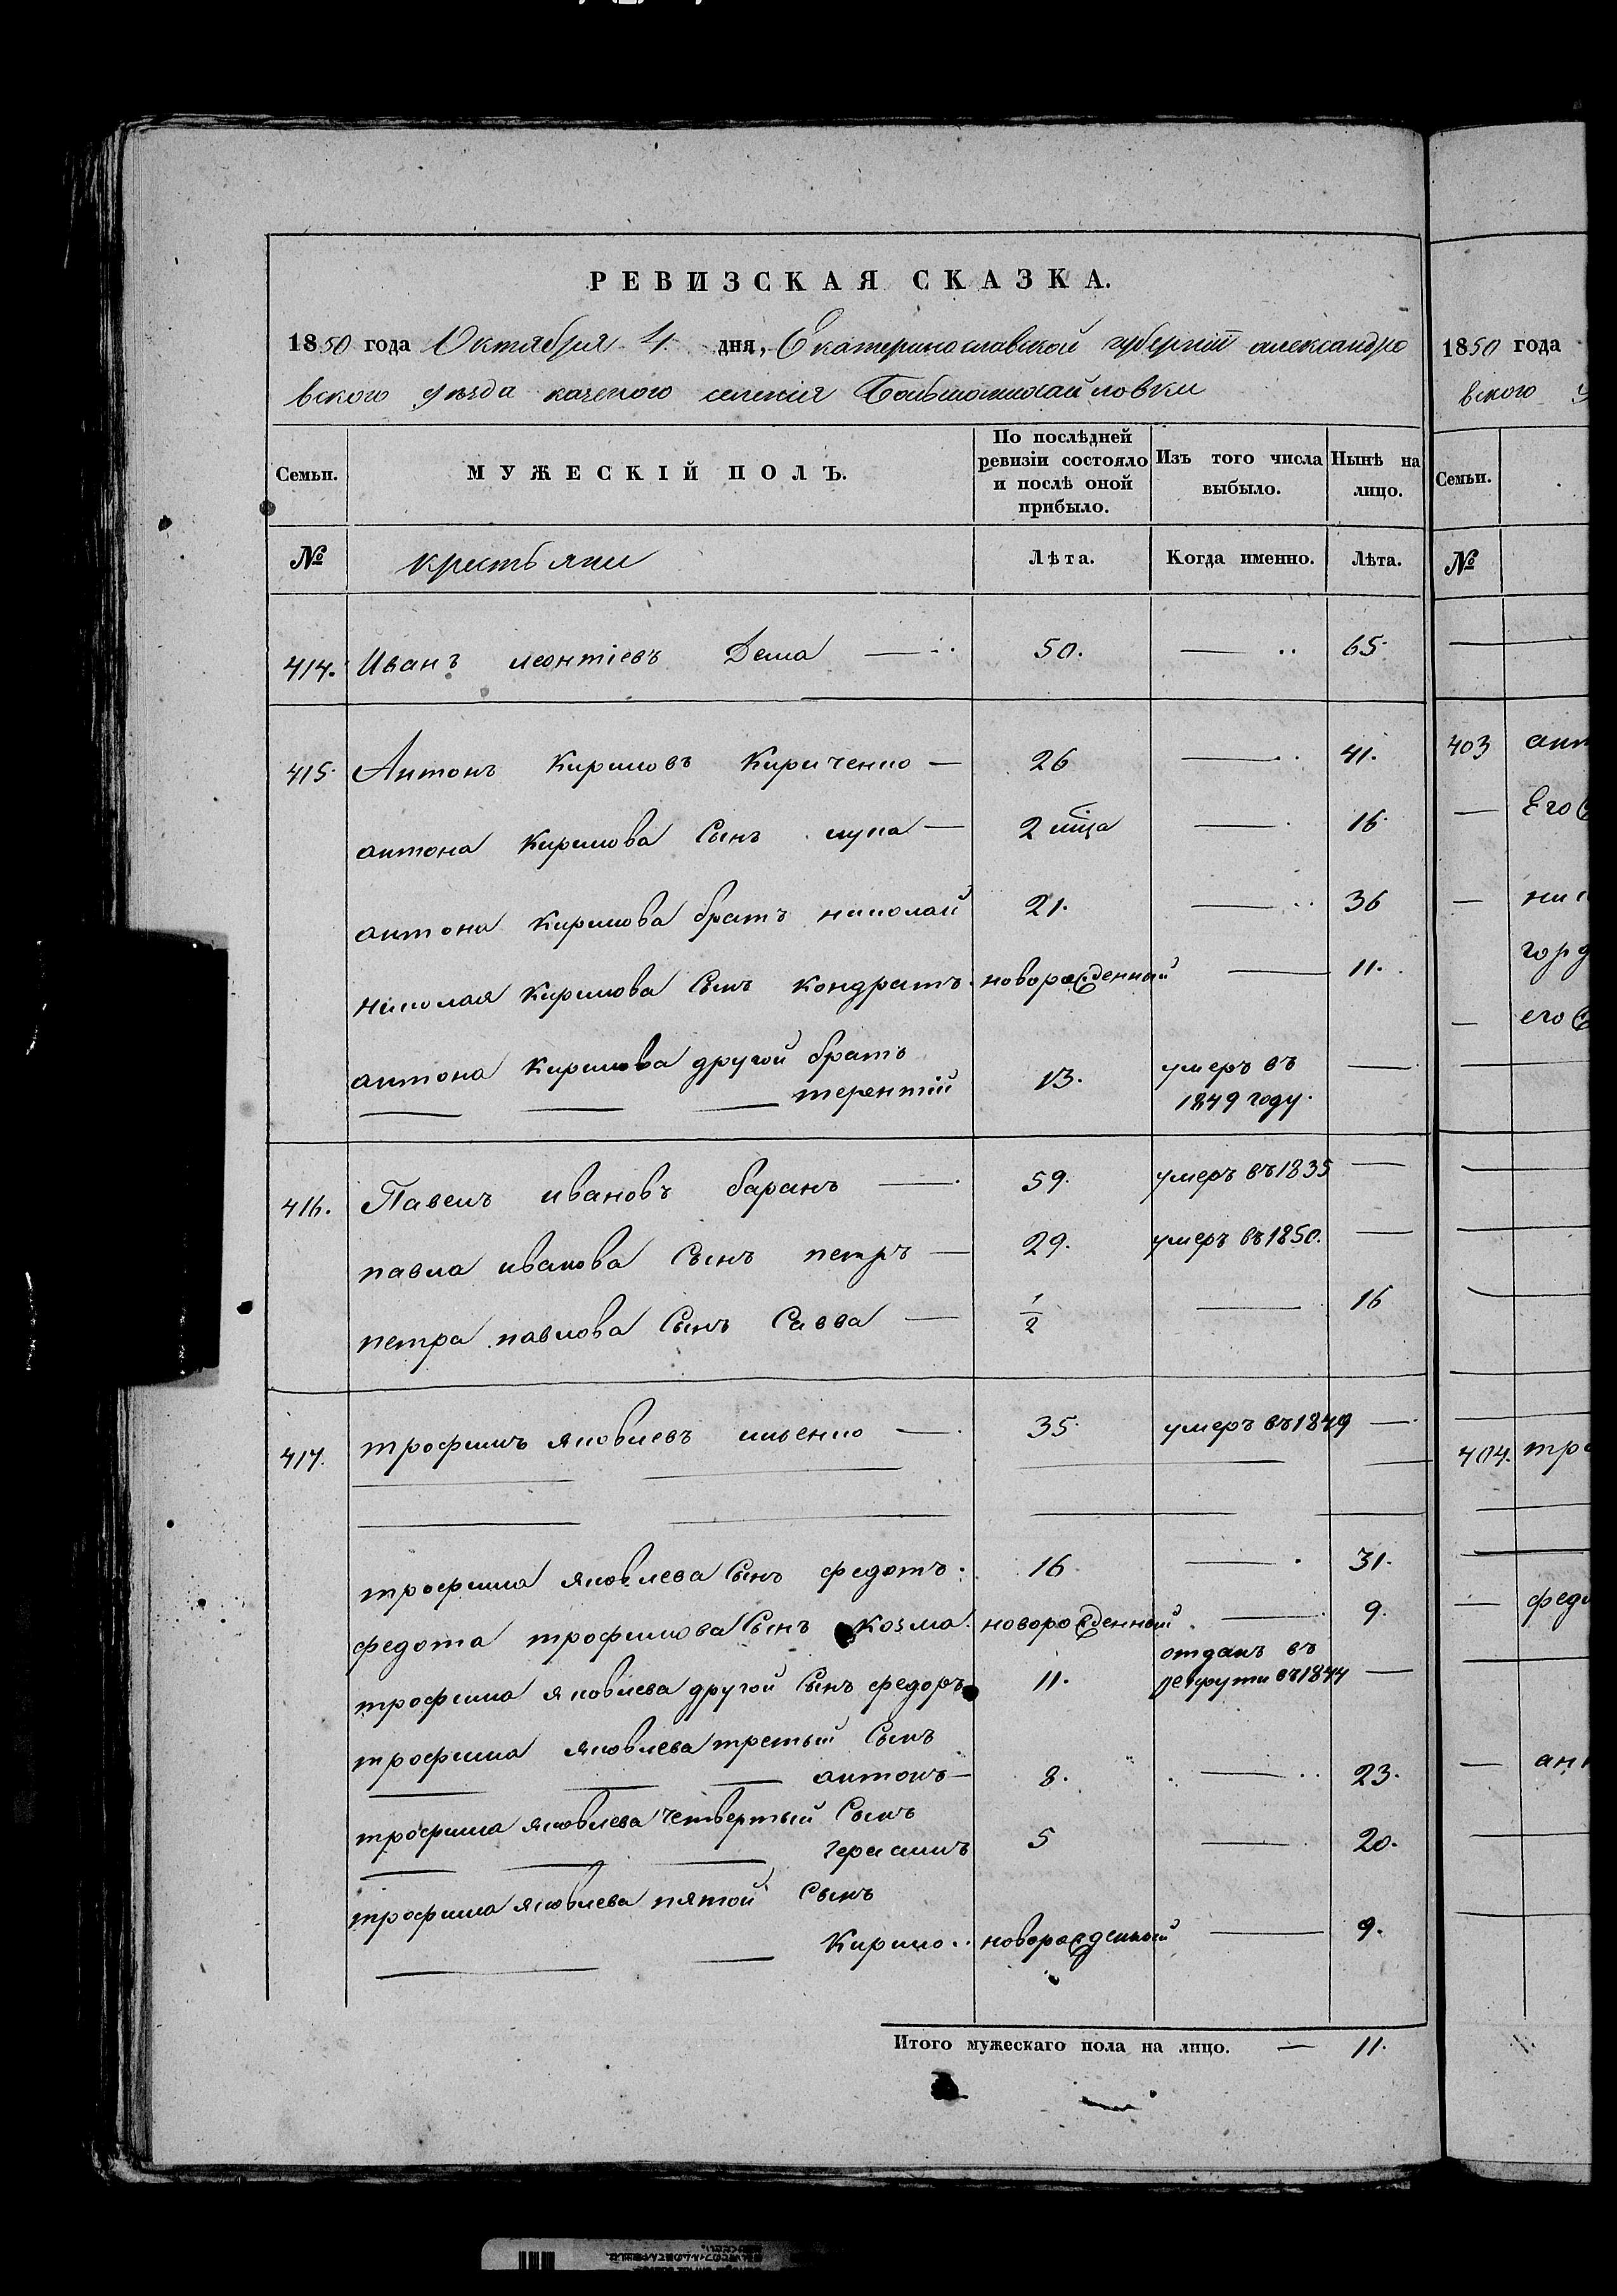 РЕВИЗСКАЯ СКАЗКА.
1850 года Октября 4. дня, Екатеринославской губернiи александро
вского уѣзда казеного селенiя Большомихайловки
Семьи.
МУЖЕСКІЙ ПОЛЪ.
По послѣдней ревизіи состояло и послѣ оной прибыло.
Изъ того числа выбыло.
Нынѣ на лицо.
№ крестьяни Лѣта. Когда именно. Лѣта.
414. Иванъ леонтіевъ Дема — 50. — 65.
415. Антонъ Кириловъ Кириченко — 26 — 41.
антона Кирилова Сынъ лука — 2 мца — 16
антона Кирилова братъ николай 21. — 36
николая Кирилова Сынъ кондратъ. новорожденный — 11.
антона Кирилова другой братъ
терентій 13. умеръ въ 1849 году. —
416. Павелъ ивановъ баранъ — 59. умеръ въ 1835 —
павла иванова Сынъ петръ — 29. умеръ въ 1850. —
петра павлова Сынъ Савва — 1/2 — 16
417. трофимъ яковлевъ ильенко — 35 умеръ въ 1849 —
трофима яковлева Сынъ федотъ. 16 — 31.
федота трофимова Сынъ козма. новорожденный — 9.
трофима яковлева другой Сынъ федоръ 11. отданъ въ рекрути въ 1844 —
трофима яковлева третый Сынъ
антонъ — 8. — 23.
трофима яковлева четвертый Сынъ
герасимъ 5 — 20.
трофима яковлева пятой Сынъ
Кирило.. новорожденный — 9.
Итого мужескаго пола на лицо. — 11.
1850 года
вского у
Семьи.
№
403 ант
Его С
ник
его С
404. тро
федо
ан